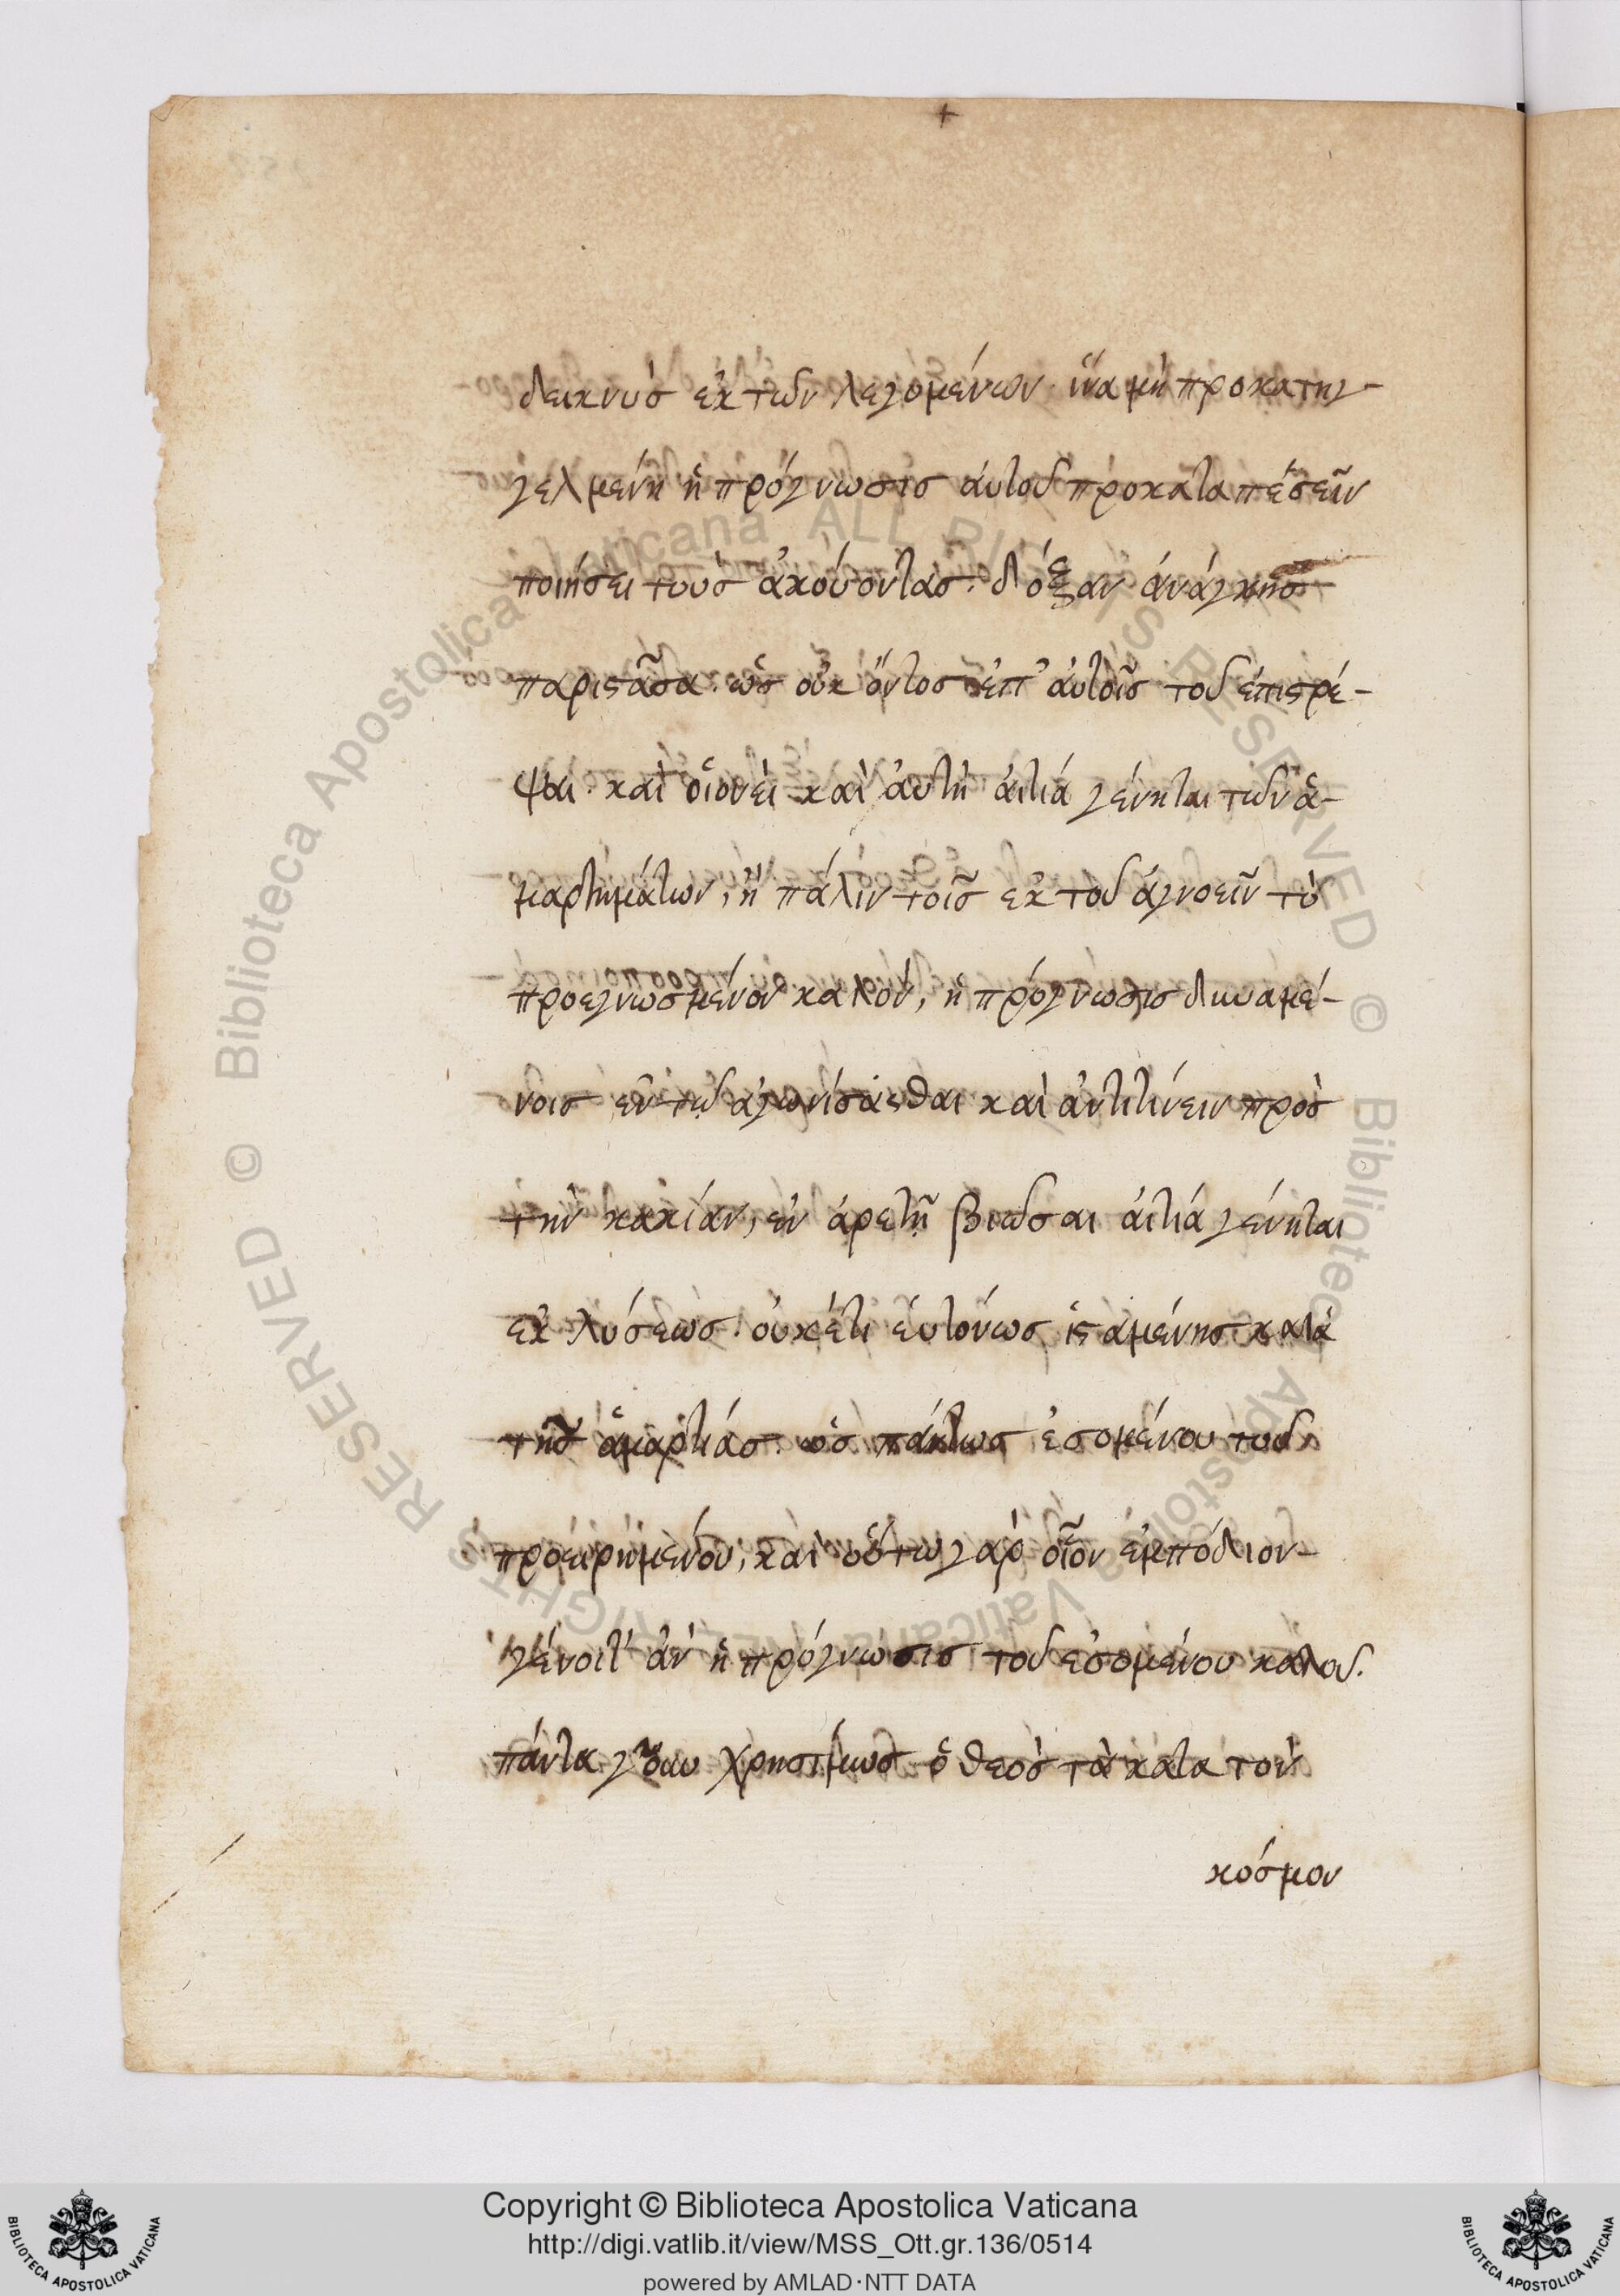 +
δεικνὺς ἐκ τῶν λεγομένων· ἵνα μὴ προκατηγ-
γελμένη ἡ πρόγνωσις αὐτοῦ προκαταπέσεῖν
ποιήσει τοὺς ἀκούοντας· δόξαν ἀνάγκης
παριστᾶσα· ὡς οὐκ ὄντος ἐπ' αὐτοῖς τοῦ ἐπιστρέ-
ψαι· καὶ οἱονεὶ καὶ αὐτὴ αἰτιά γένηται τῶν ἁ-
μαρτημάτων, ἢ πάλιν τοῖς ἐκ τοῦ ἀγνοεῖν τὸ
προεγνωσμένον καλὸν, ἡ πρόγνωσις δυναμέ-
νοις ἐν τῷ ἀγωνίσασθαι καὶ ἀντιτίνειν πρὸς
τὴν κακίαν, ἐν ἀρετῇ βιῶσαι αἰτιά γένηται
ἐκλύσεως· οὐκέτι εὐτόνως ἱσταμένης κατὰ
τῆς ἁμαρτιάς· ὡς πάντως ἐσομένου τοῦ
προειρημένου, καὶ οὕτω γὰρ οἷον ἐμπόδιον
γένοιτ' ἂν ἡ πρόγνωσις τοῦ ἐσομένου καλοῦ.
πάντα χρησίμως ὁ θεὸς τὰ κατα τὸν
κόσμον
Copyright © Biblioteca Apostolica Vaticana
http://digi.vatlib.it/view/MSS_Ott.gr.136/0514
powered by AMLAD·NTT DATA
BIBLIOTECA APOSTOLICA VATICANA
BIBLIOTECA APOSTOLICA VATICANA
© Biblioteca Apostolica Vaticana ALL RIGHTS RESERVED © Biblioteca Apostolica Vaticana ALL RIGHTS RESERVED